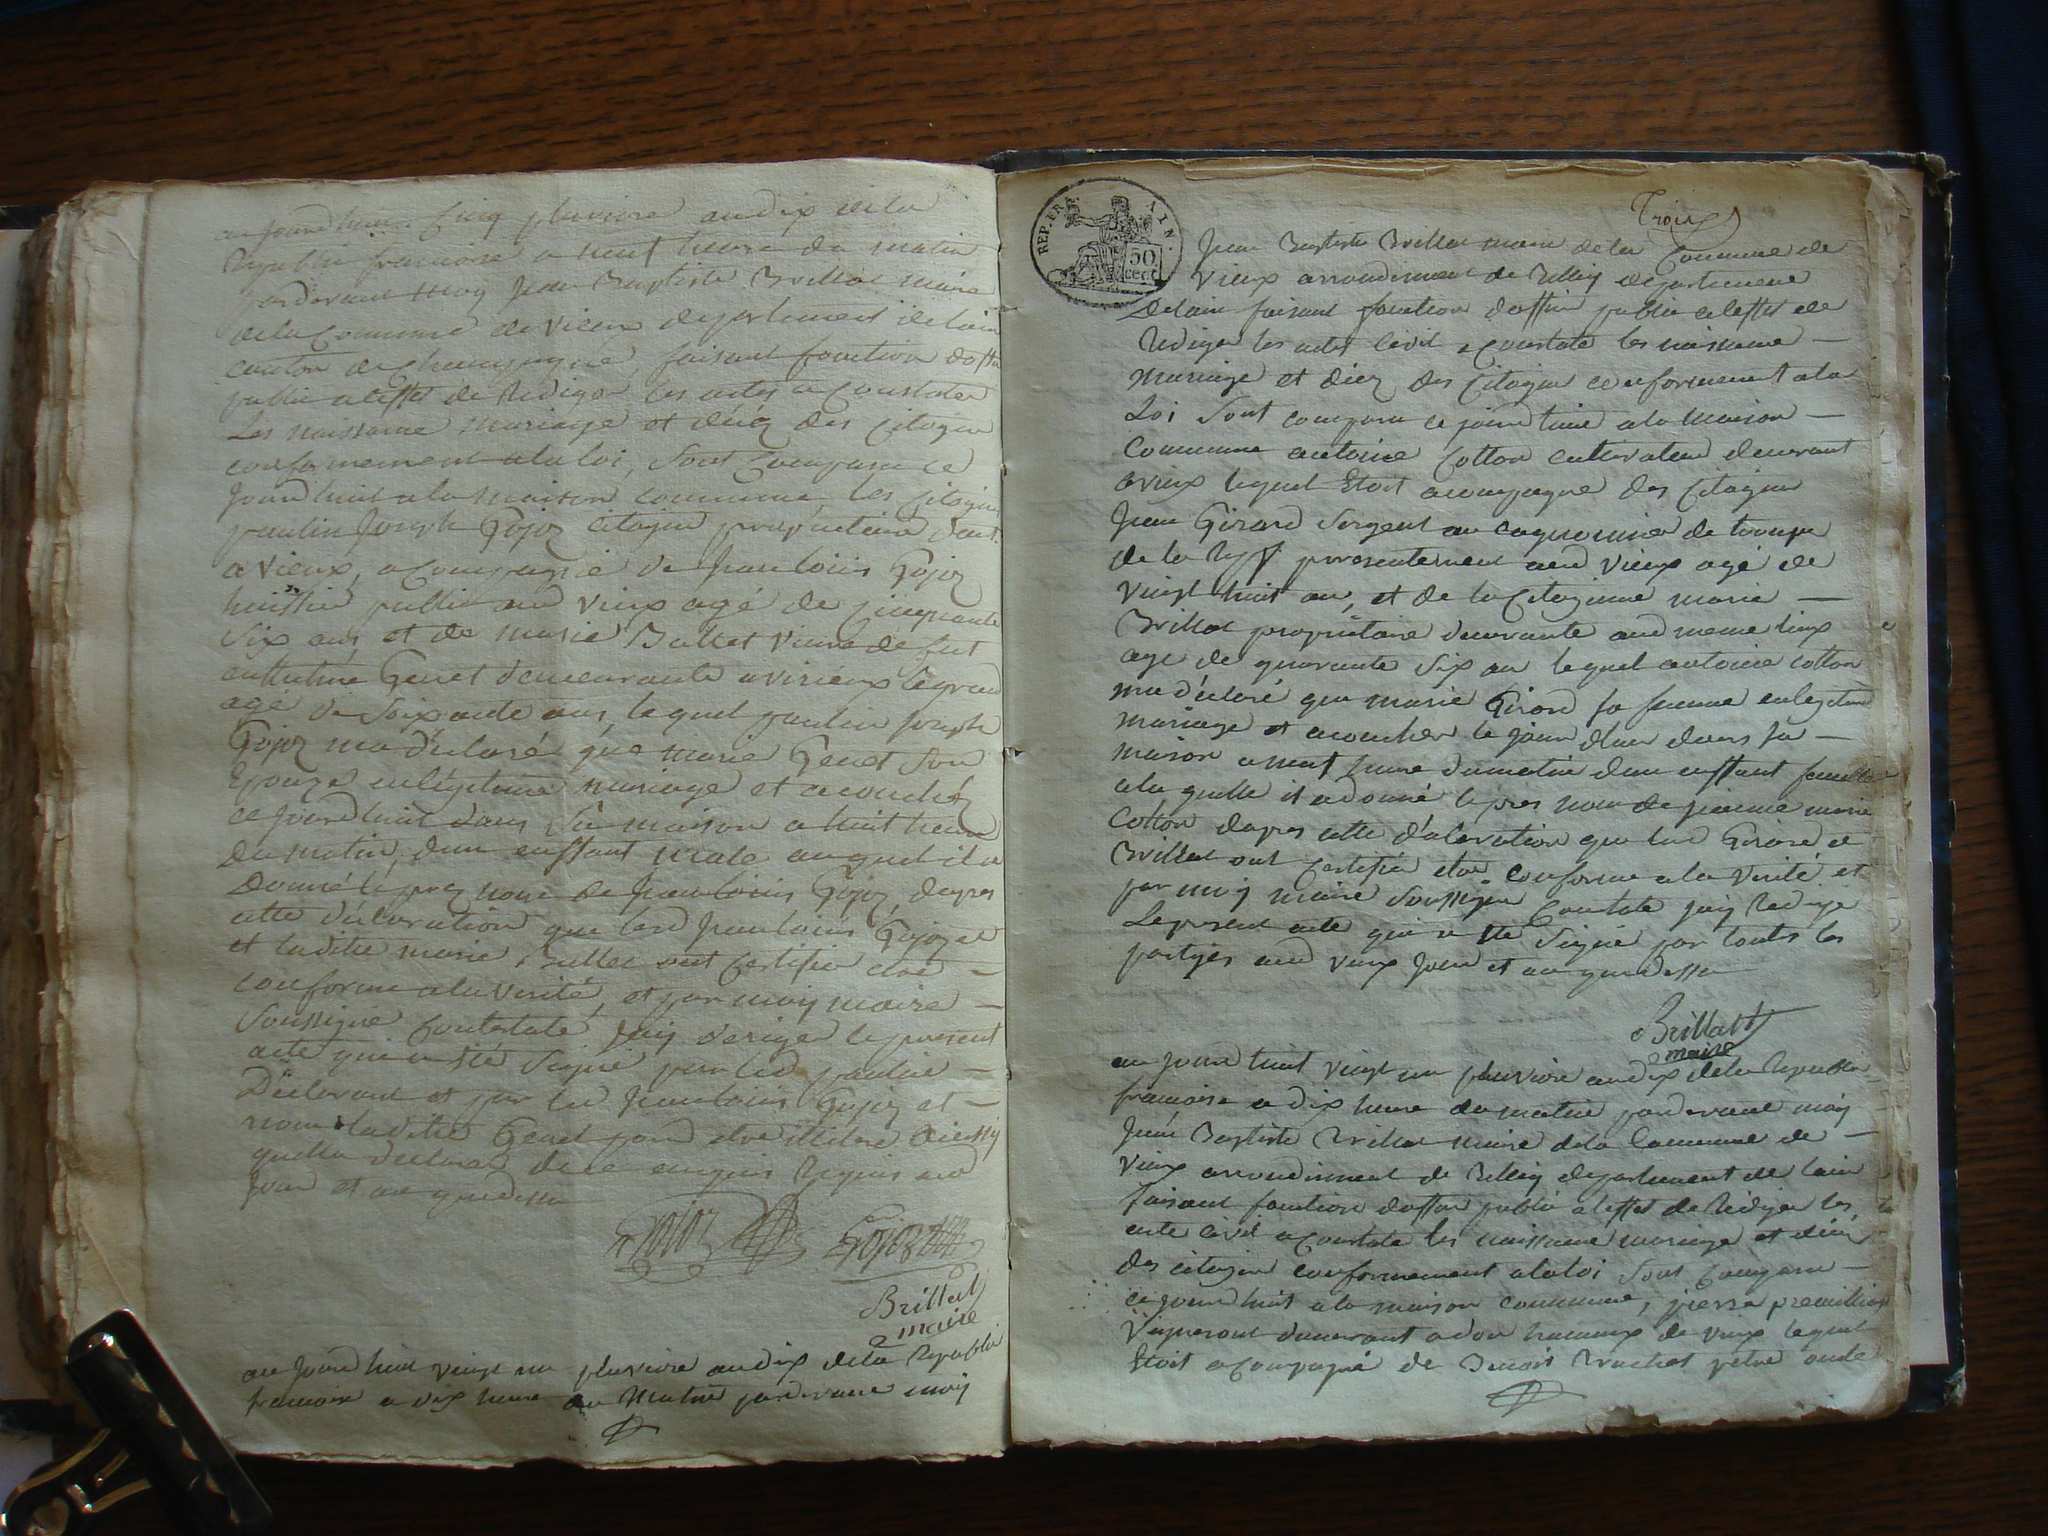 au jourdhuit cinq pluviose an dix de la
Republi francoise a neuf heure du matin
par devant moy Jean Baptiste Brillat maire
de la Commune de Vieux departement de lain
canton de champagne, faisant fonction doffi
public a leffet de Rediger les actes a Constater
Les naissance mariage et décez des Citoyen
conformement a la loi, sont Comparu ce
Jourdhuit a la maison commune les Citoyens
paulin Joseph Gojoz citoyen propriétaire
a vieux, acompagné de Jean loüis Gojoz
huissié public aud vieux agé de cinquante
six ans et de marie Ballet veuve de fut
Genet demeurante a virieux le grand
agé de soixante ans lequel paulin Joseph
Gojoz ma déclaré que marie Genet son
Epouze en légitime mariage et acouchéz
ce jourdhuit dans sa maison a huit heure
du matin, dun enffant male auquel il a
Donné le prez nom de Jean loüis Gojoz, dapres
cette déclaration que led Jean loüis Gojoz et
et laditte marie Ballet ont Certifié etre
conforme a la vérité, et par moy maire
soussigné Constaté, Jay rediger le present
acte qui a été signé par led paulin
Déclarant et par led Jean loüis Gojoz et
non laditte Genet pour etre illitere Ainssy
quelle declaré de ce enquis Requis aud
Jour et an que dessu
Gojoz Gojoz
Brillat
maire
au Jourdhuit vingt un pluviose an dix de la Republi
francoise a dix heure du Matin par devant moy
REP. FRA. AIN.
50
cent
Trois
Jean Baptiste Brillat maire de la Commune de
Vieux arrondissement de Belley departement
Delain faisant fonction doffier public a leffet de
Rediger les actes Civil a Constate les naissance
mariage et décez des Citoyen conformement a la
Loi sont comparu ce jourdhuit a la maison
Commune antoine Cotton cultivateur demeurant
a vieux lequel Etoit acompagné des Citoyen
Jean Girard sergent au de troupe
de la presentement aud vieux agé de
vingt huit an, et de la Citoyenne marie
Brillat propriétaire demeurante aud meme lieux
agé de quarante six an lequel antoine cotton
ma déclaré que marie Girard sa femme en legitime
mariage et acoucher le jour dhier dans sa
maison a neuf heure du matin dun enffant femelle
a laquelle il a donné le prez nom de jeanne marie
Cotton dapres cette déclaration que led Girard et
Brillat ont Certifié etre conforme a la Vérité et
par moy maire soussigné Constaté jay Rediger
Le present acte qui a été signé par toutes les
partyes aud vieux Jour et an que dessu
Brillat
maire
au Jourdhuit vingt un pluviose an dix de la Republi
francoise a dix heure du matin par devant moy
Jean Baptiste Brillat maire de la Commune de
Vieux arrondissement de Belley departement de lain
faisant fonction doffier public a leffet de Rediger les
acte Civil a Constate les naissance mariage et décéz
des citoyen conformement a la loi sont Comparu
ce Jourdhuit a la maison commune, pierre
Vigneront demeurant a don hameaux de vieux lequel
Etoit acompagné de Benoit Brachet oncle